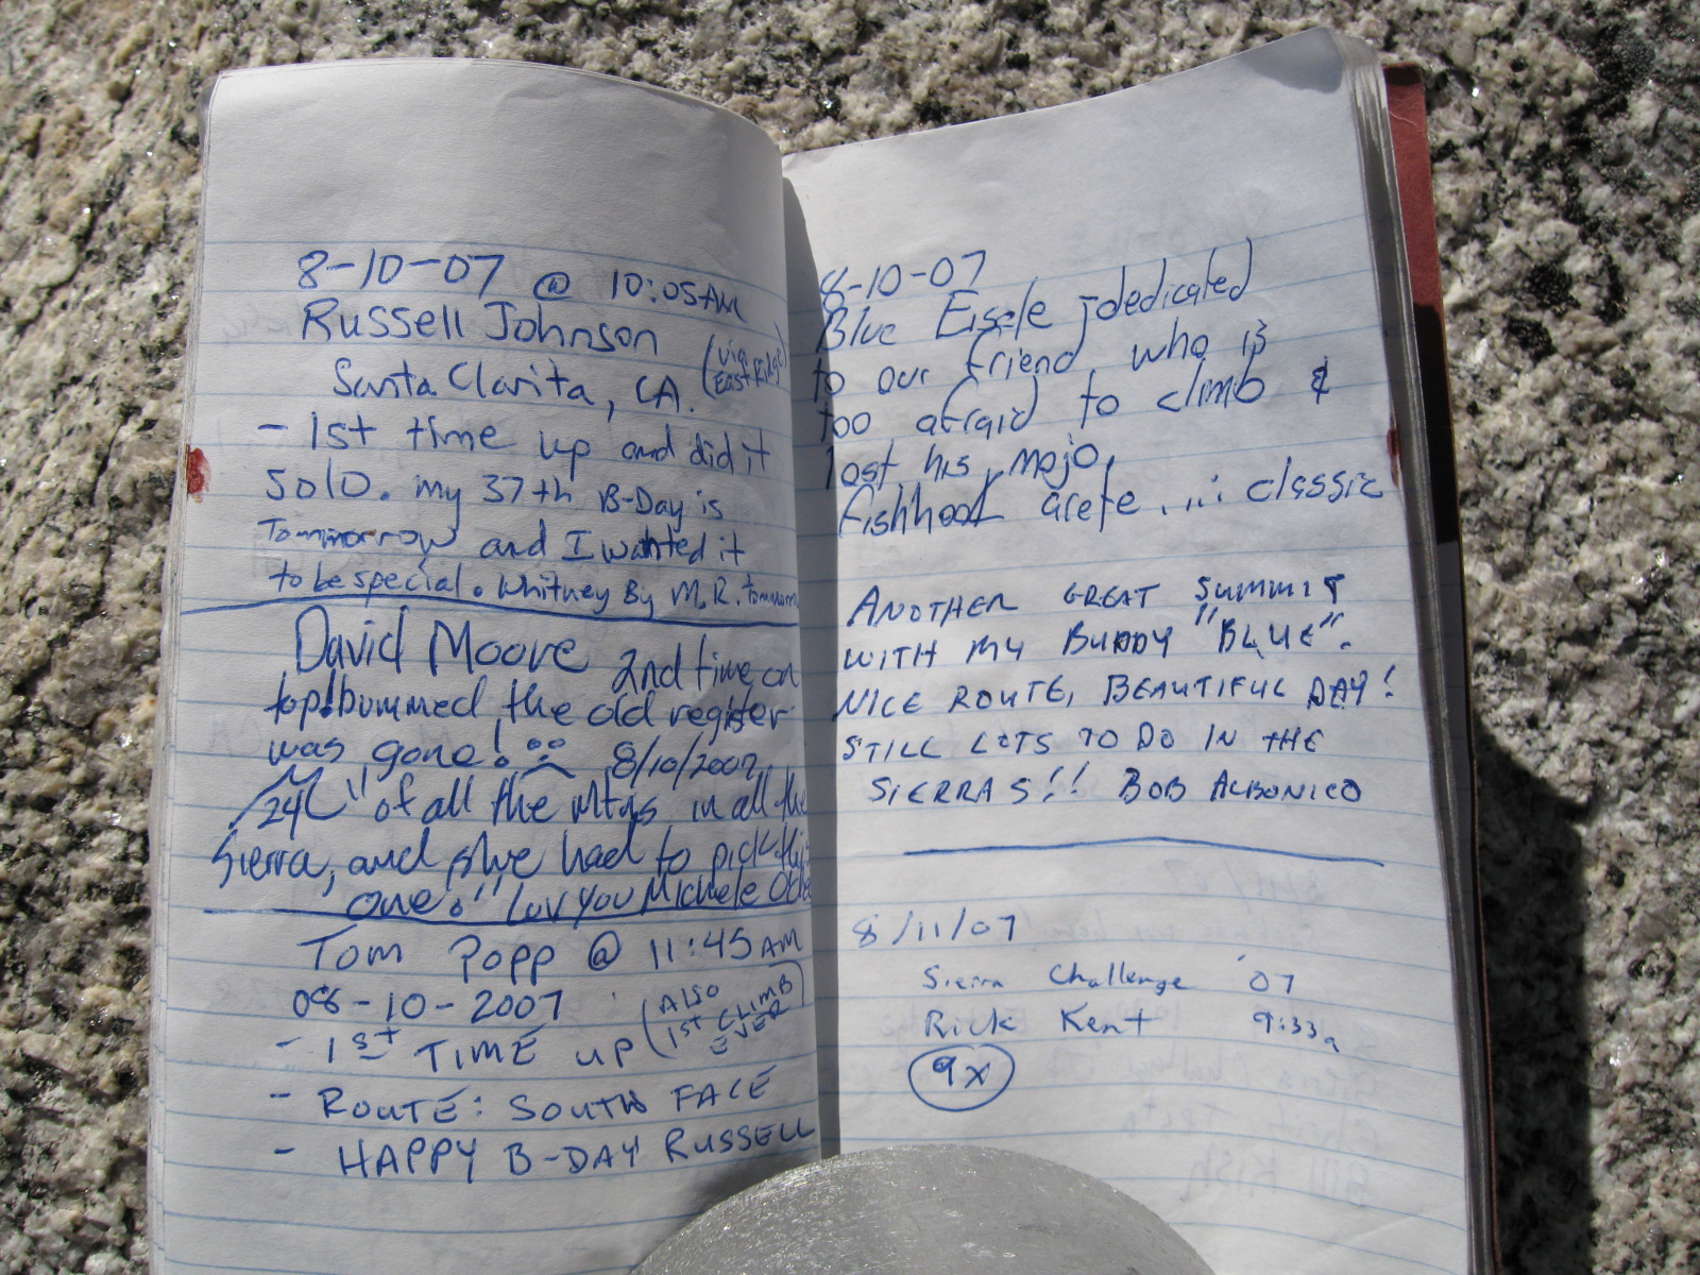 8-10-07 @ 10:05AM
Russell Johnson
(via
East Ridge)
Santa Clarita, CA.
- 1st time up and did it
solo. my 37th B-Day is
Tommorrow and I wanted it
to be special. Whitney By M.R.
David Moore 2nd time on
top! bummed the old register
was gone! 8/10/2007
"of all the Mtns in all the
Sierra, and she had to pick this
one." Luv you Michele
Tom Popp @ 11:45AM
08-10-2007
(ALSO
1ST CLIMB
EVER)
- 1st TIME UP
- ROUTE: SOUTH FACE
- HAPPY B-DAY RUSSELL
8-10-07
Blue Eisele - dedicated
to our friend, who is
too afraid to climb &
lost his mojo,
Fishhook arete ... classic
ANOTHER GREAT SUMMIT
WITH MY BUDDY "BLUE".
NICE ROUTE, BEAUTIFUL DAY!
STILL LOTS TO DO IN THE
SIERRAS!! BOB ALBONICO
8/11/07
Sierra Challenge '07
Rick Kent 9:33a
9x